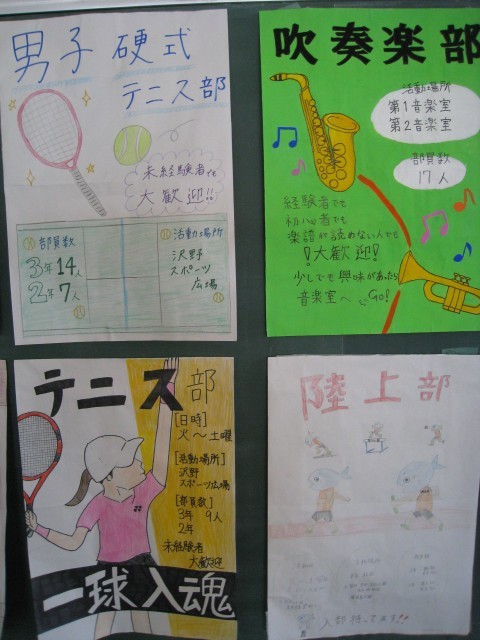 男子 硬式
テニス部
未経験者でも
大歓迎!!
部員数
3年 14人
2年 7人
活動場所
沢野
スポーツ
広場
吹奏楽部
活動場所
第1音楽室
第2音楽室
部員数
17人
経験者でも
初心者でも
楽譜が読めない人でも
!大歓迎!
少しでも興味があったら
音楽室へ Go!
テニス部
[日時]
火〜土曜
[活動場所]
沢野
スポーツ広場
[部員数]
3年 9人
2年
未経験者
大歓迎
一球入魂
陸上部
入部待ってます!!